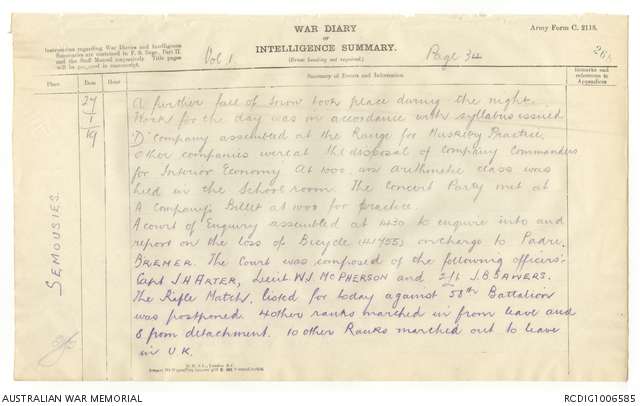 WAR DIARY
OF
INTELLIGENCE SUMMARY.
(Erase heading not required).
Army Form C. 2118.
Instructions regarding War Diaries and Intelligence
Summaries are contained in F. S. Regs., Part II.
and the Staff Manual respectively. Title pages
will be prepared in manuscript.
Vol 1.
Page 34
Place
Date
Hour
Summary of Events and Information
Remarks and
references to
Appendices
SEMOUSIES.
24
1
19
A further fall of Snow took place during the night.
Work for the day was in accordance with syllabus issued
'D' Company assembled at the Range for Musketry Practice.
Other companies were at the disposal of Company Commanders
for Interior Economy At 1000. an arithmetic class was
held in the School room. The Concert Party met at
A Company's Billet at 1000 for practice.
A court of Enquiry assembled at 1430 to enquire into and
report on the loss of Bicycle on charge to Padre.
BREMER. The Court was composed of the following officers:-
Capt J.H ARTER, Lieut. W.J. McPHERSON and 2/Lt J.B SAWERS.
The Rifle Match, listed for today against 58th Battalion
was postponed. 4 other ranks marched in from leave and
6 from detachment. 10 other Ranks marched out to leave
in U.K.
AUSTRALIAN WAR MEMORIAL
RCDIG1006585